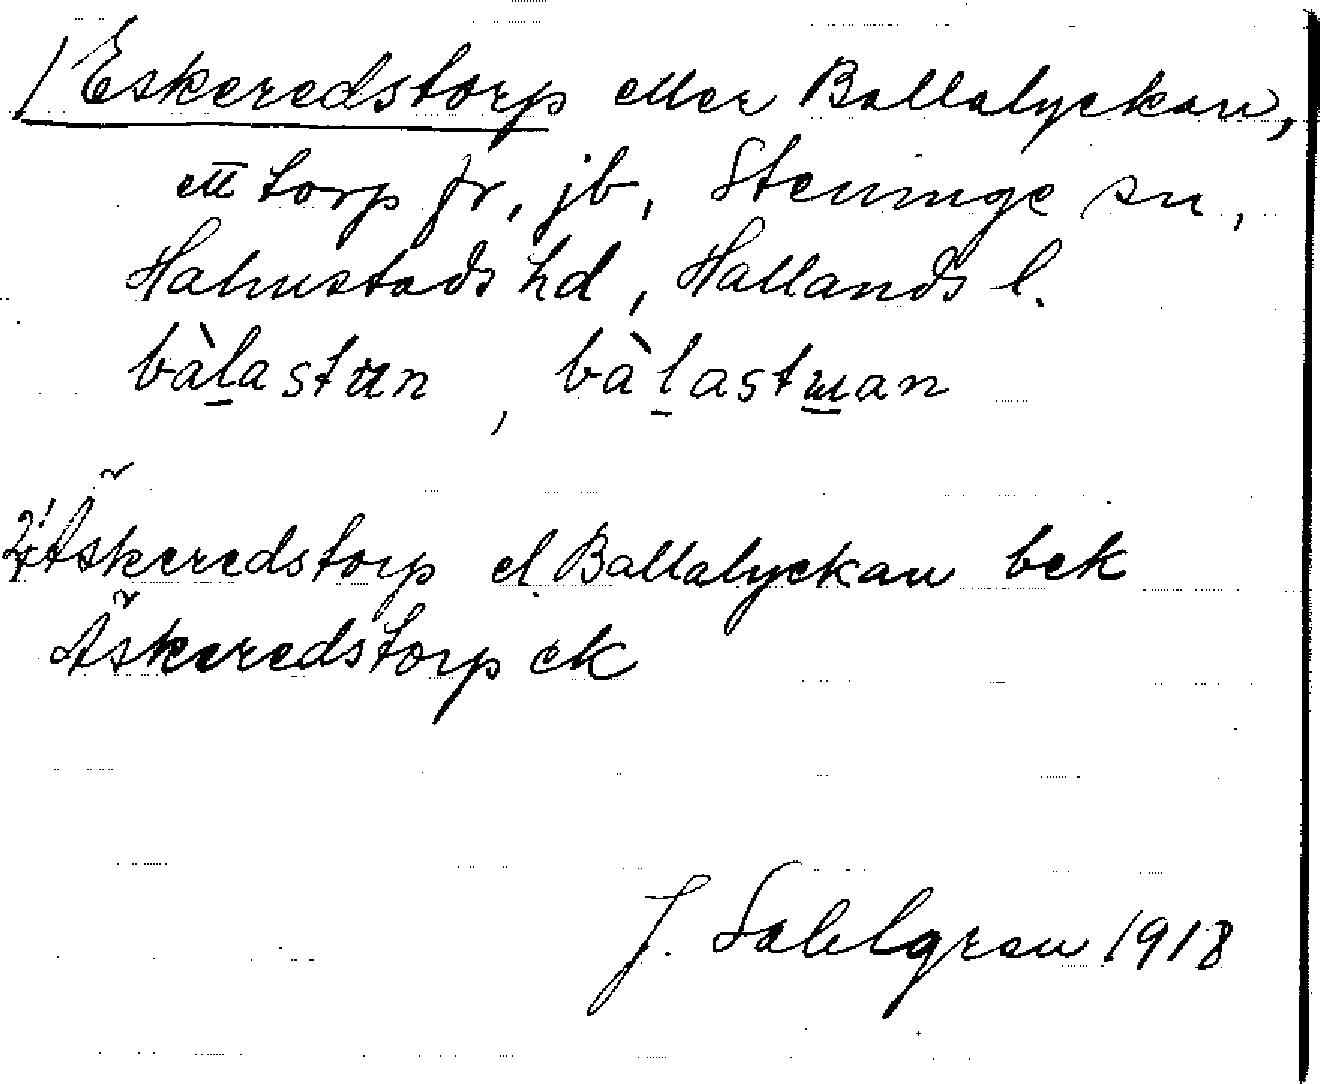 1/ Eskeredstorp eller Ballalyckan,
ett torp fr, jb, Steninge sn,
Halmstads hd, Hallands l.
bàlastan, bàlastman
2/ Äskeredstorp el. Ballalyckan bek
Äskeredstorp ek
J. Sahlgren 1918